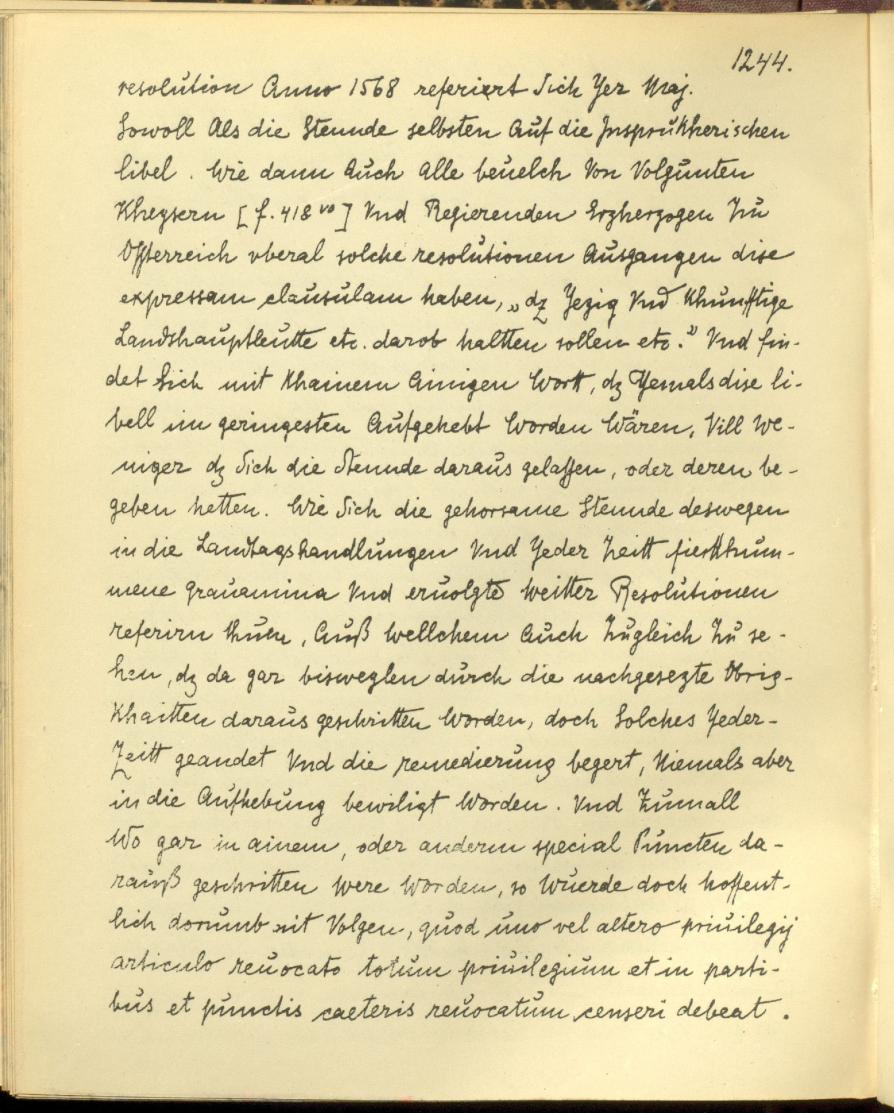 1244.
resolution Anno 1568 referiert sich Yer Maj.
Sowoll Als die Stennde selbsten Auf die Jnsprukherischen
libel. Wie dann Auch Alle beuelch Von Volgunten
Kheysern [f. 418 vo] Vnd Regierenden Erzherzogen Zu
Össterreich vberal solche resolutionen Ausgangen dise
expressam clausulam haben, „dz Yezig Vnd Khunfftige
Landshauptleutte etc. darob haltten sollen etc." Vnd fin-
det Sich mit Khainem Ainigen Wortt, dz Yemals dise li-
bell im geringesten Aufgehebt Worden Wären, Vill We-
niger dz Sich die Stennde daraus gelassen, oder deren be-
geben hetten. Wie Sich die gehorsame Stennde deswegen
in die Landtagshandlungen Vnd Yeder Zeitt fierkhum-
mene grauamina Vnd eruolgte Weitter Resolutionen
referirn thuen, Auß Wellchem Auch Zugleich Zu se-
hen, dz da gar bisweylen durch die nachgesezte Obrig-
Khaitten daraus geschritten Worden, doch Solches Yeder-
Zeitt geandet Vnd die remedierung begert, Niemals aber
in die Aufhebung bewiligt Worden. Vnd Zumall
Wo gar in ainem, oder anderm special Puncten da-
rauß geschritten Were Worden, so Wuerde doch hoffent-
lich dorumb nit Volgen, quod uno vel altero priuilegij
articulo reuocato totum priuilegium et in parti-
bus et punctis caeteris reuocatum censeri debeat.